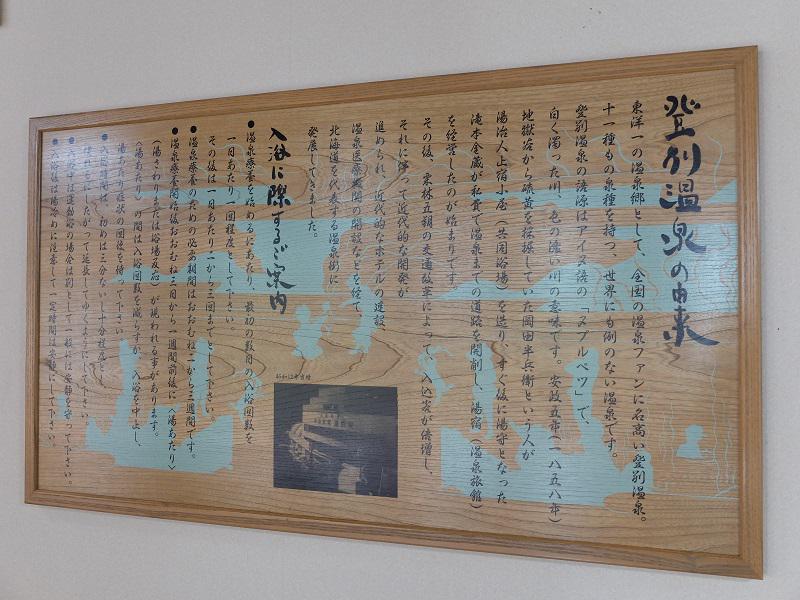 登別温泉の由来
東洋一の温泉郷として、全国の温泉ファンに名高い登別温泉。
十一種もの泉種を持つ、世界にも例のない温泉です。
登別温泉の語源はアイヌ語の「ヌプルペツ」で、
白く濁った川、色の濃い川の意味です。安政五年(一八五八年)
地獄谷から硫黄を採掘していた岡田半兵衛という人が
湯治人止宿小屋(共同浴場)を造り、すぐ後に湯守となった
滝本金蔵が私費で温泉までの道路を開削し、湯宿(温泉旅館)
を経営したのが始まりです。
その後、栗林五朔の交通改革によって、入込客が倍増し、
それに伴って近代的な開発が
進められ、近代的なホテルの建設
温泉医療機関の開設などを経て、
北海道を代表する温泉街に
発展してきました。
昭和12年当時
入浴に際するご案内
●温泉療養を始めるにあたり、最初の数日の入浴回数を
一日あたり一回程度として下さい。
その後は一日あたり二から三回までとして下さい。
●温泉療養のための必要期間はおおむね二から三週間です。
●温泉療養開始後おおむね三日から一週間前後に〈湯あたり〉
(湯さわりまたは浴場反応)が現われる事があります。
〈湯あたり〉の間は入浴回数を減らすか、入浴を中止し、
湯あたり症状の回復を待って下さい。
●入浴時間は、初めは三分ないし十分程度とし
慣れるにしたがって延長してゆくようにして下さい。
●入浴中は運動浴の場合は別として一般には安静を守って下さい。
●入浴後は湯冷めに注意して一定時間は安静にして下さい。